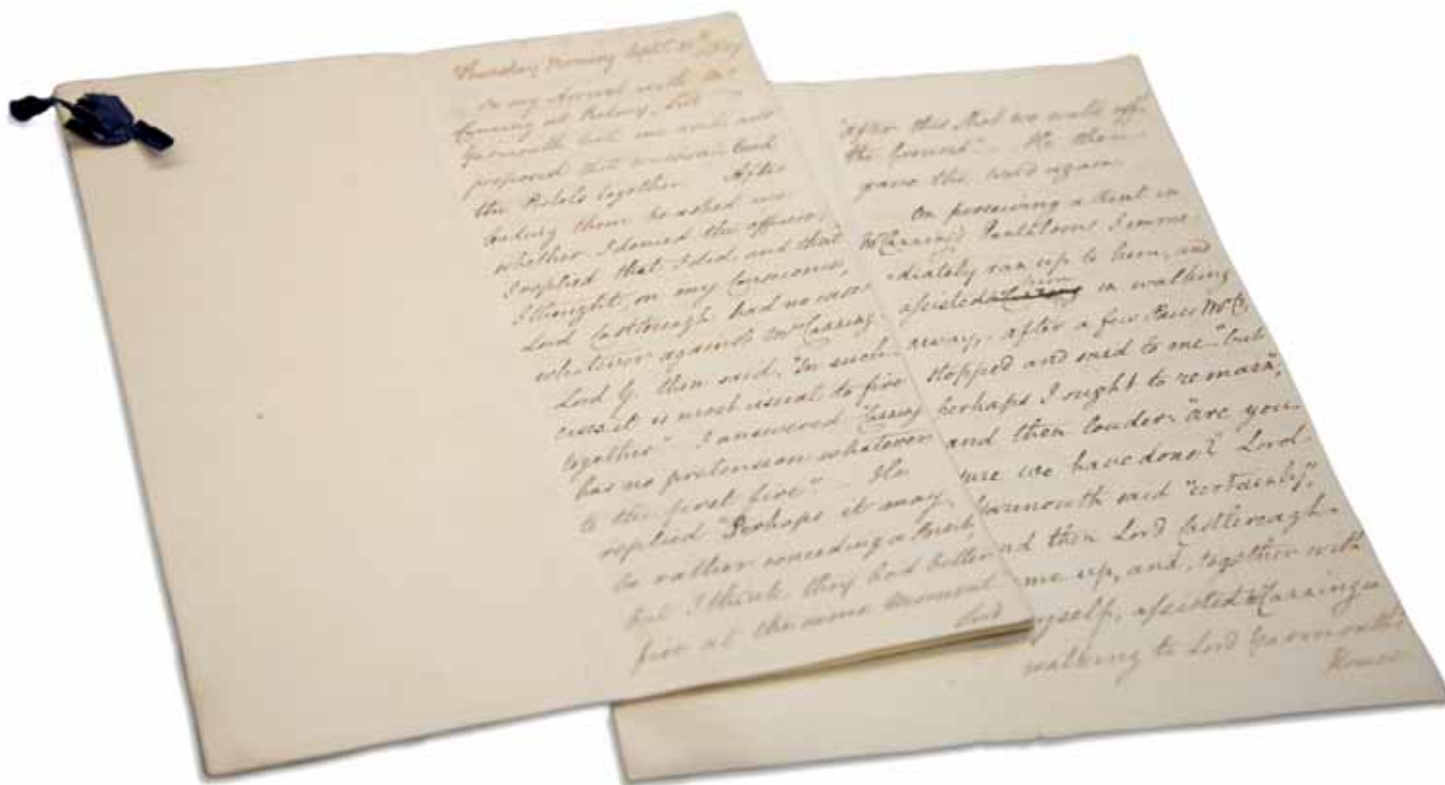 Thursday Morning Sept. 21st 1809
On my Arrival with Mr
Canning at Putney, Lord
Yarmouth met me and
proposed that we should load
the Pistols together. After
loading them he asked me
whether I denied the offence,
I replied that I did, and that
I thought, on my Conscience,
Lord Castlereagh had no case
whatever against Mr Canning
Lord Y. then said, "In such
cases it is most usual to fire
together". I answered "Canning
has no pretension whatever
to the first fire". – He
replied "Perhaps it may
be rather conceding a Point,
but I think, they had better
fire at the same Moment
Lord
"after this Shot we walk off
the Ground". He then
gave the word again.
On perceiving a Rent in
Mr Canning's Pantaloons I imme
diately ran up to him, and
assisted him in walking
away, – after a few Paces Mr C.
stopped and said to me "but
perhaps I ought to remain",
and then louder, "are you
sure we have done?" Lord
Yarmouth said "certainly",
and then Lord Castlereagh
came up, and, together with
myself, assisted Mr Canning in
walking to Lord Yarmouth's
House